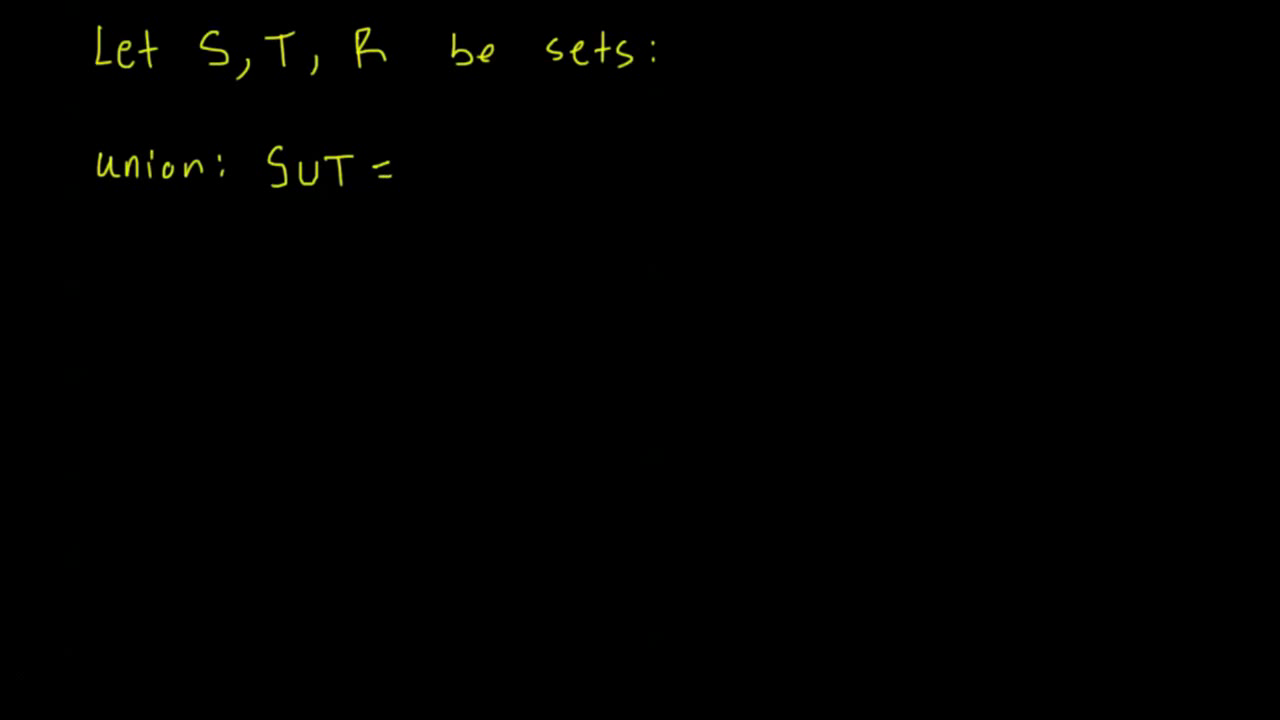 Let S, T, R be sets:
union: S∪T =